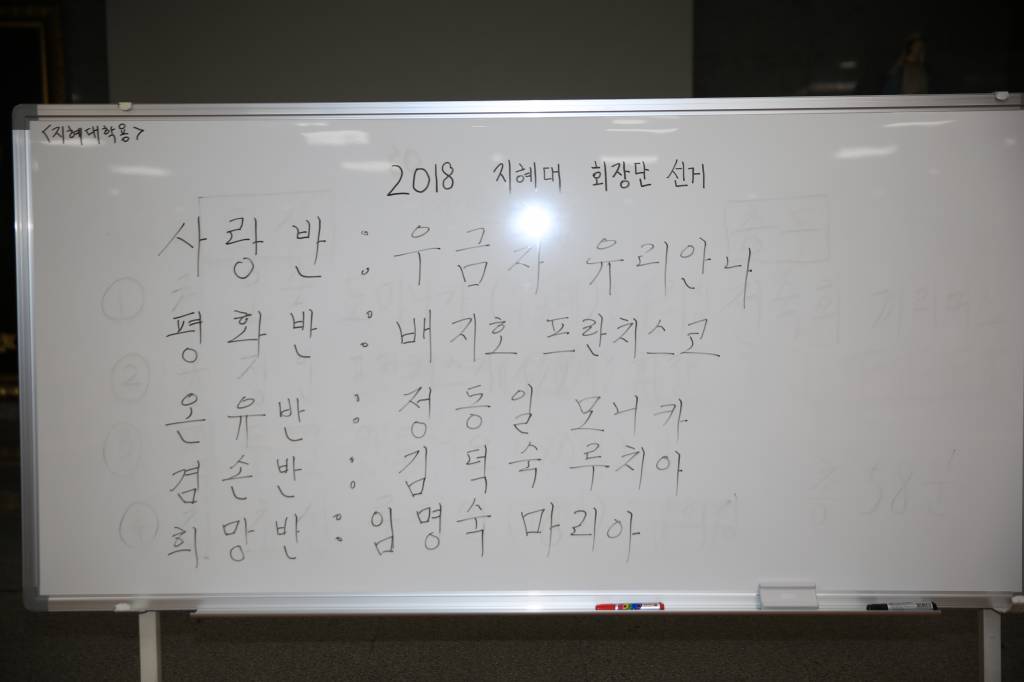 <지혜대학용>
2018 지혜대 회장단 선거
사랑반 : 우금자 유리안나
평화반 : 배지호 프란치스코
온유반 : 정동일 모니카
겸손반 : 김덕숙 루치아
희망반 : 임명숙 마리아